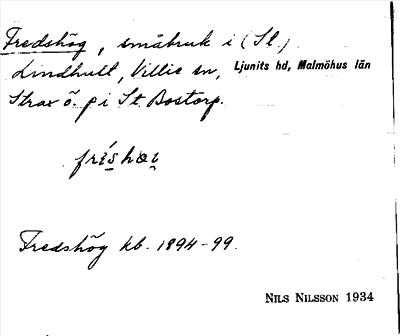 Fredshög, småbruk i (St.)
Lindhult, Villie sn, Ljunits hd, Malmöhus län
Strax ö. p i St. Bostorp.
Fredshög kb. 1894-99.
NILS NILSSON 1934